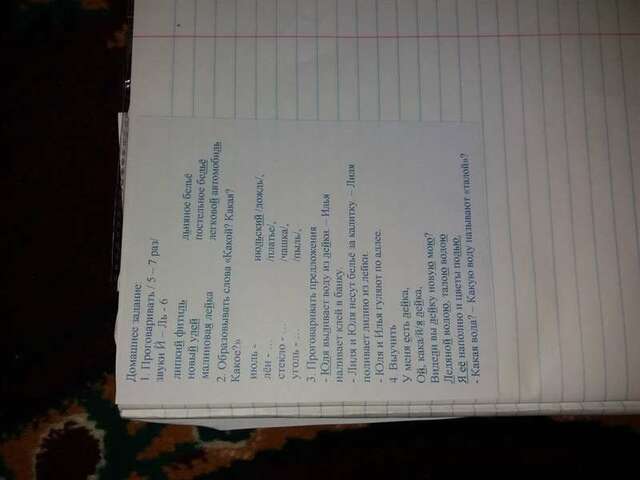 Домашнее задание
1. Проговаривать / 5 – 7 раз/
звуки Й – ЛЬ - 6
липкий фитиль льняное бельё
новый улей постельное бельё
малиновая лейка легковой автомобиль
2. Образовывать слова «Какой? Какая?
Какое?»
июль - июльский /дождь/,
лён - … /платье/,
стекло - … /чашка/,
уголь - … /пыль/,
3. Проговаривать предложения
- Юля выливает воду из лейки. – Илья
наливает клей в банку.
- Лиля и Юля несут бельё за калитку. – Лиля
поливает лилию из лейки.
- Юля и Илья гуляют по аллее.
4. Выучить
У меня есть лейка,
Ой, какай/я лейка,
Видели вы лейку новую мою?
Ледяной водою, талою водою
Я её наполню и цветы полью.
- Какая вода? – Какую воду называют «талой»?